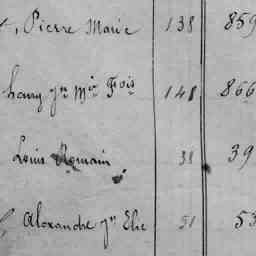 Pierre Marie 138 859
hary Jn Mie Fois 148 866
Louis Romain 38 39
Alexandre Jn Elie 51 53